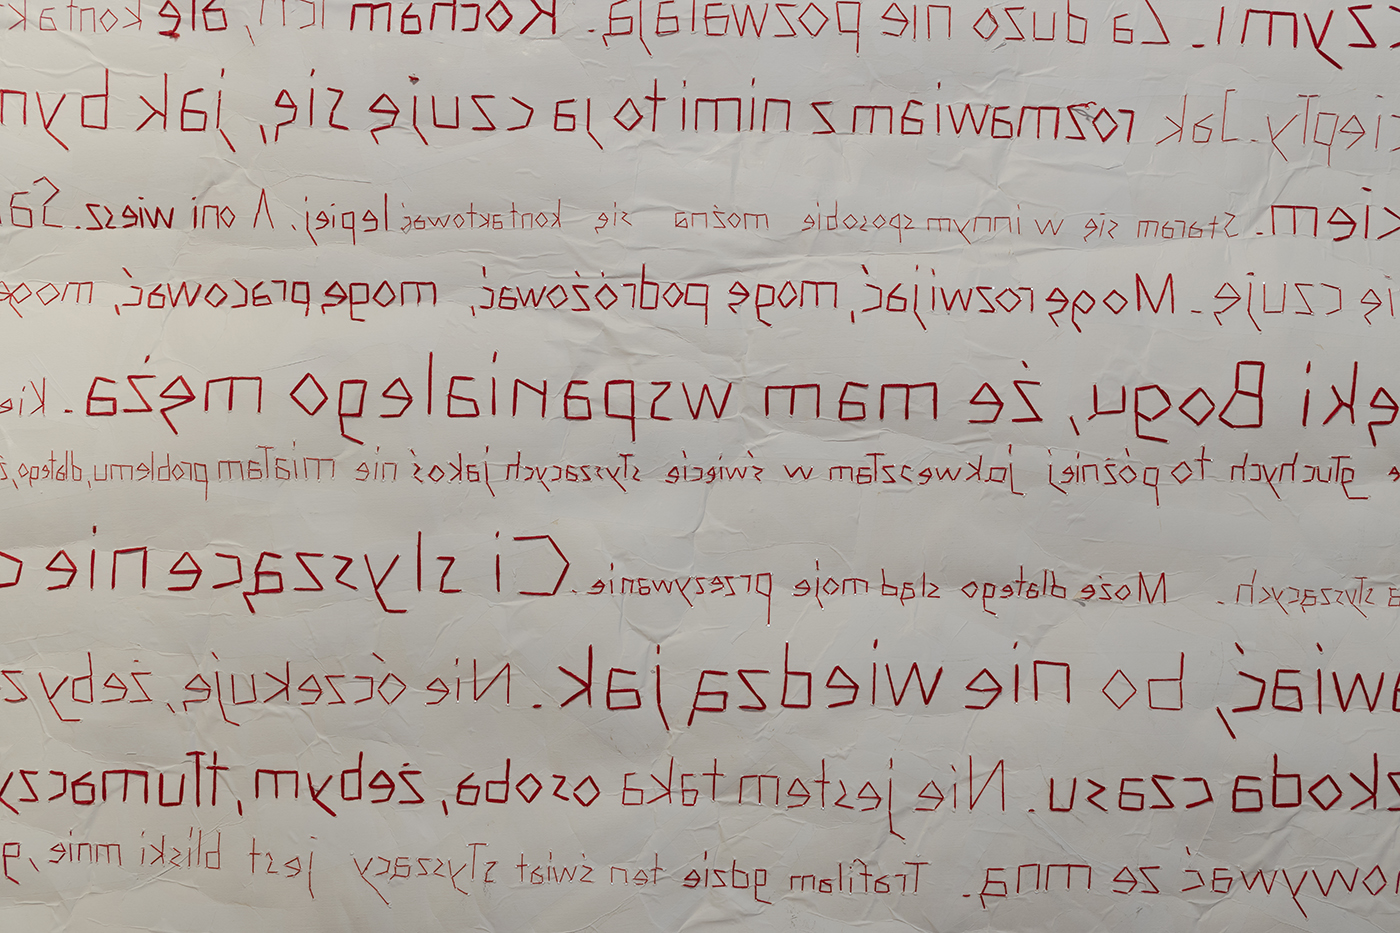 szymi. Za duzo nie pozwalają. Kocham ich, ale kontak
ciepły. Jak rozmawiam z nimi to ja czuję się, jak bym
kiem. Staram się w innym sposobie można się kontaktować lepiej. A oni wiesz. Są
ię czuję. Mogę rozwijać, mogę podróżować, mogę pracować, mogę
ęki Bogu, że mam wspanialego męża. Kie
e głuchych to później jak weszłam w święcie słyszących jakoś nie miałam problemu, dlatego, ż
a słyszących. Może dlatego stąd moje przezywanie. Ci slyszące nie c
awiać, bo nie wiedzą jak. Nie óczekuję, żeby z
szkoda czasu. Nie jestem taka osoba, żebym, tłumaczy
owywać ze mną. Trafilam gdzie ten świat słyszacy jest bliski mnie, g